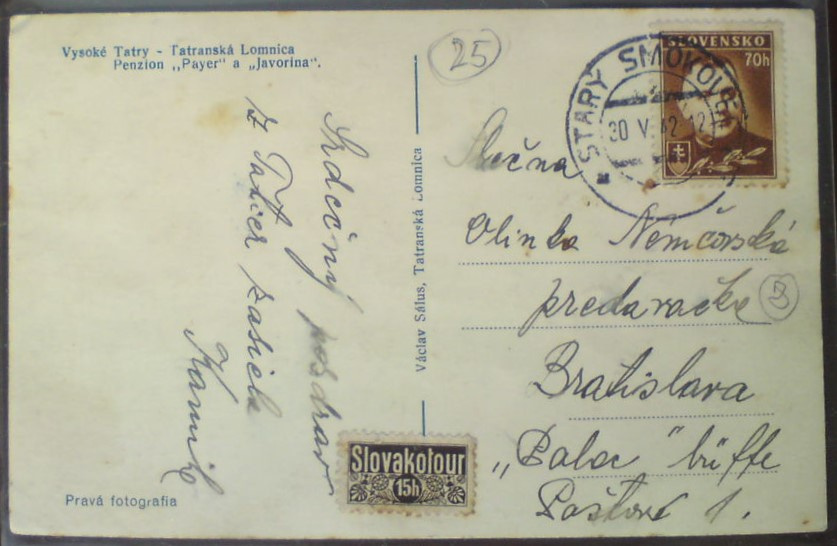 Vysoké Tatry - Tatranská Lomnica
Penzion „Payer" a „Javorina".
25
STARÝ SMOKOVEC
30 V 42-12
SLOVENSKO
70h
Slečna
Olinka Němčovská
predavačka
3
Bratislava
„Palac" büffe
1.
Srdečný pozdrav
z Tatier zasiela
Kamil
Václav Sálus, Tatranská Lomnica
Slovakotour
15h
Pravá fotografia